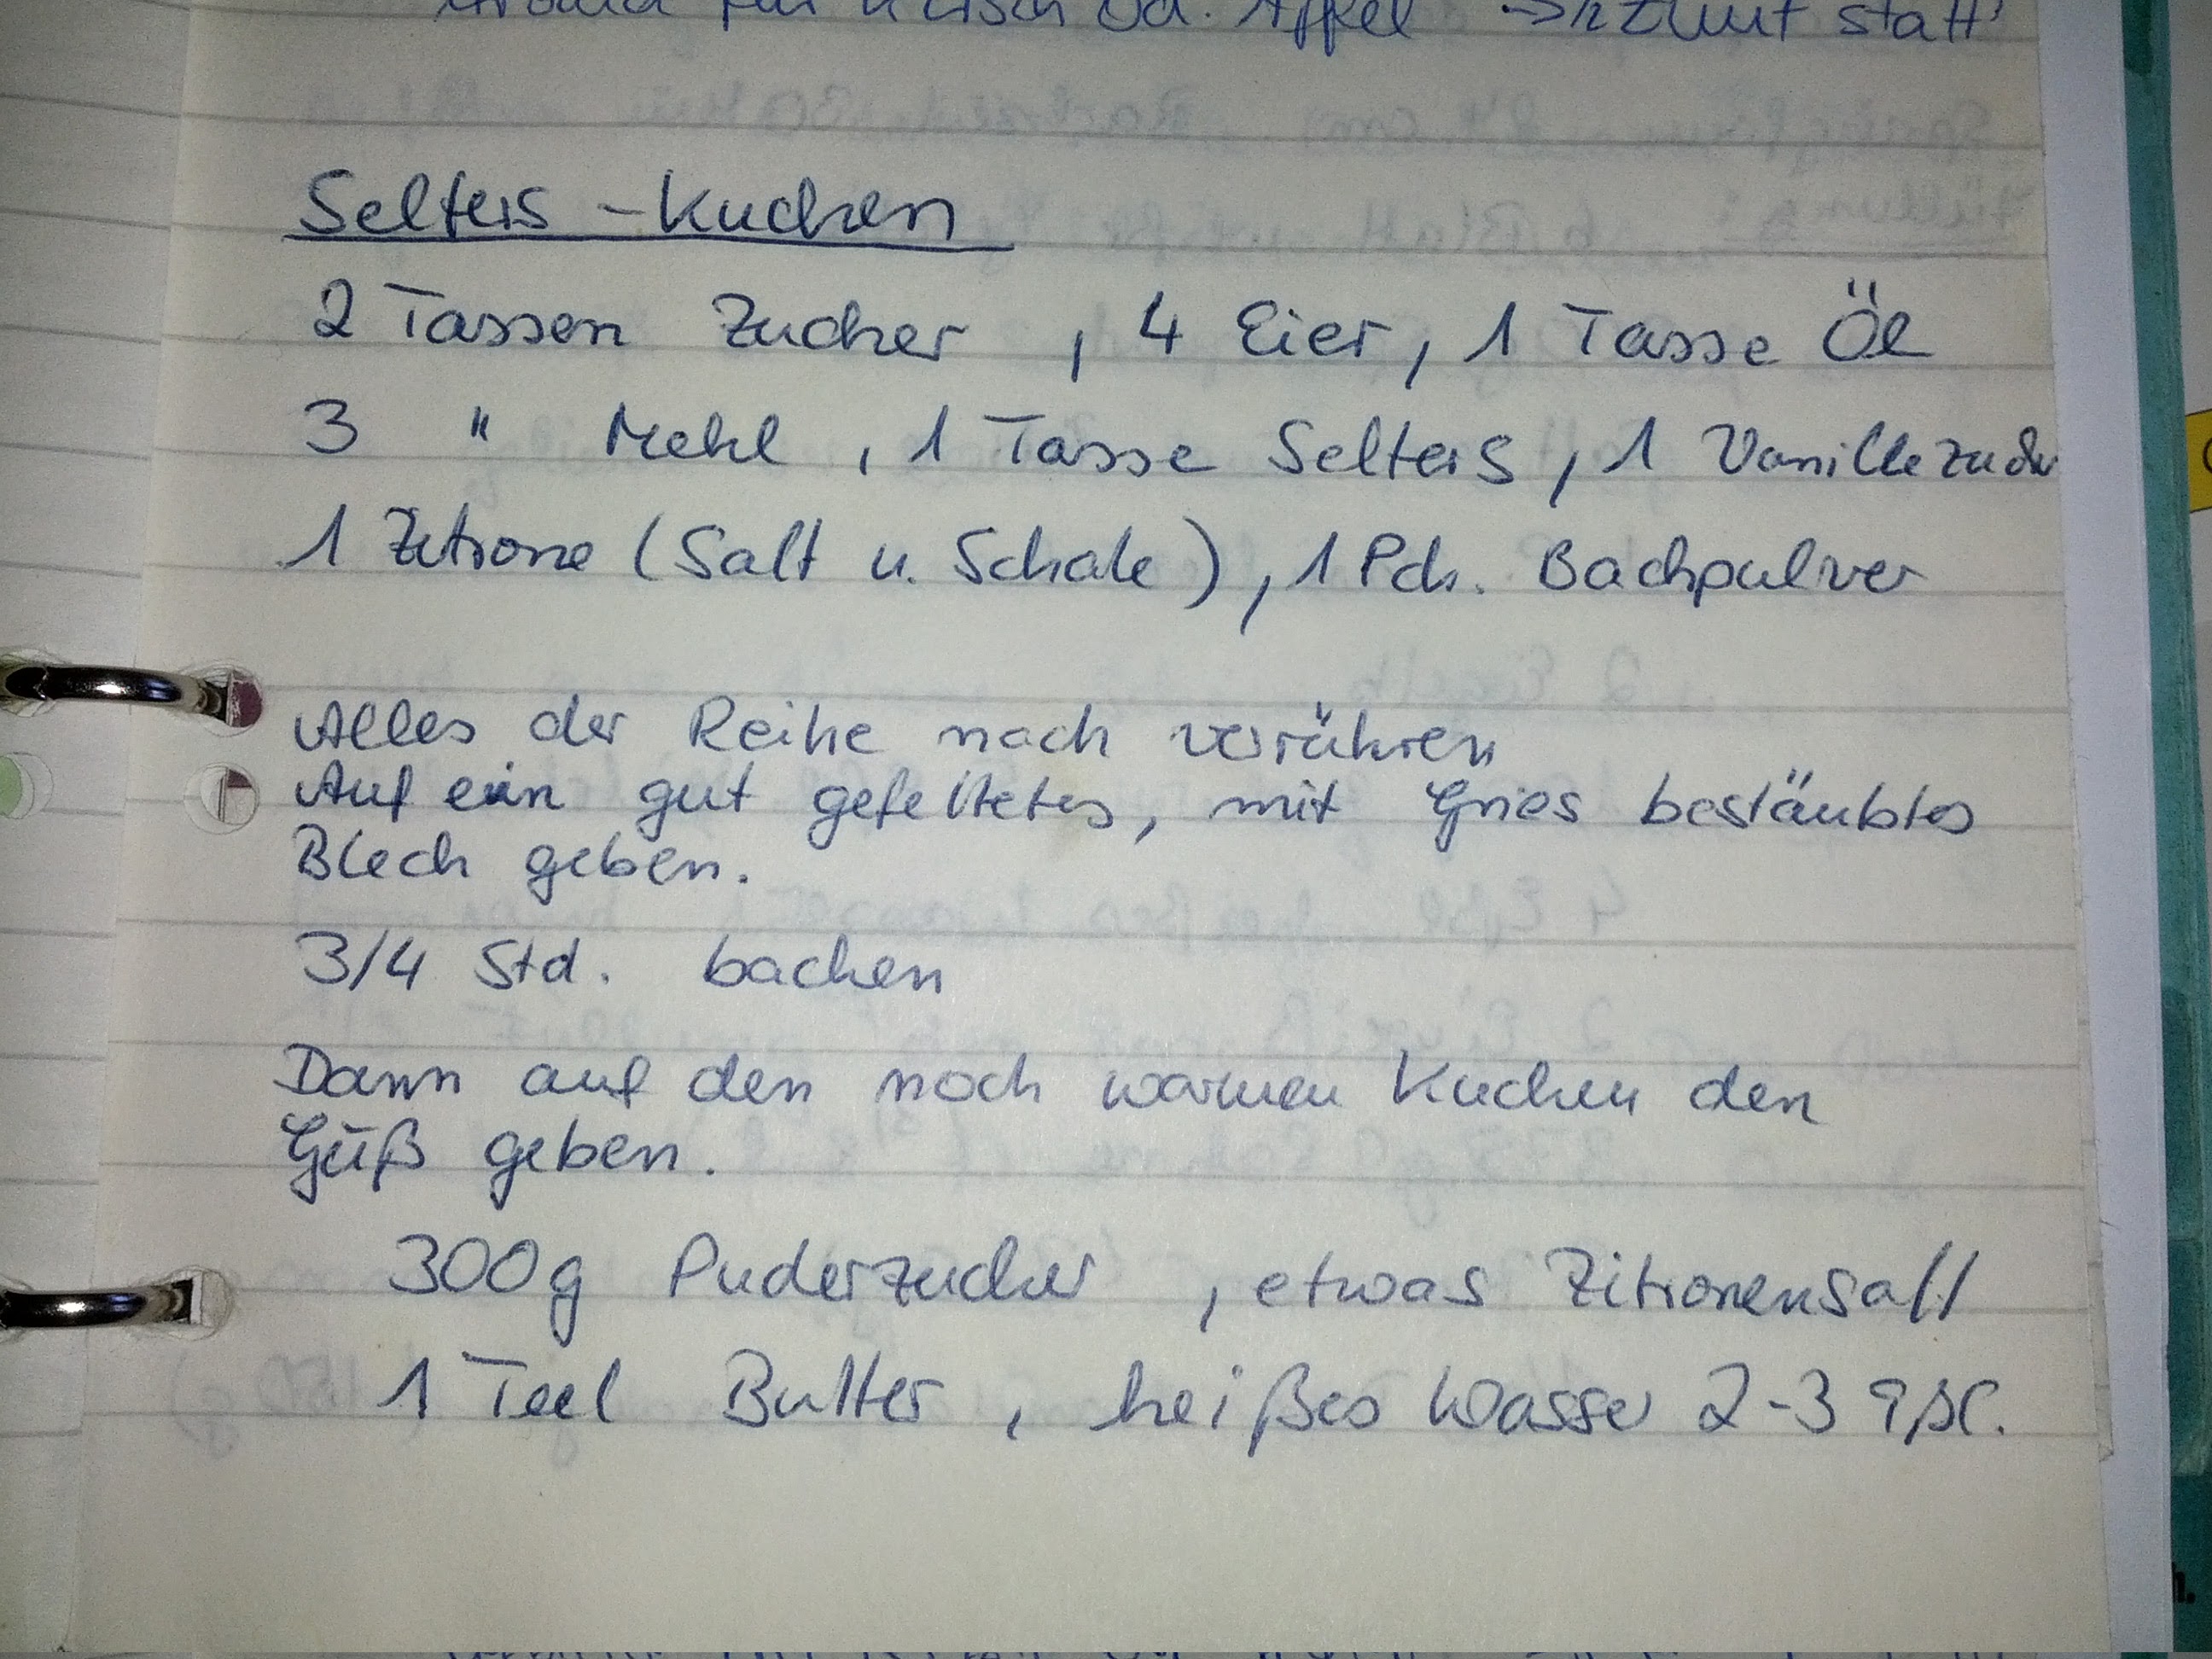 für Kirsch od. Äpfel → Zimt statt
Selters-Kuchen
2 Tassen Zucker, 4 Eier, 1 Tasse Öl
3 " Mehl, 1 Tasse Selters, 1 Vanillezucker
1 Zitrone (Saft u. Schale), 1 Pck. Backpulver
Alles der Reihe nach verrühren
Auf ein gut gefettetes, mit Gries bestäubtes
Blech geben.
3/4 Std. backen
Dann auf den noch warmen Kuchen den
Guß geben.
300g Puderzucker, etwas Zitronensaft
1 Teel Butter, heißes Wasser 2-3 Eßl.